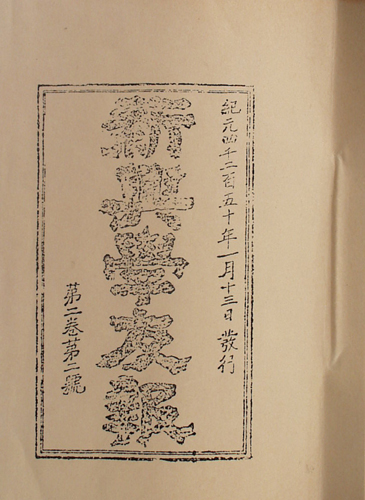 紀元四千二百五十年一月十三日發行
新興學友報
第二卷第二號